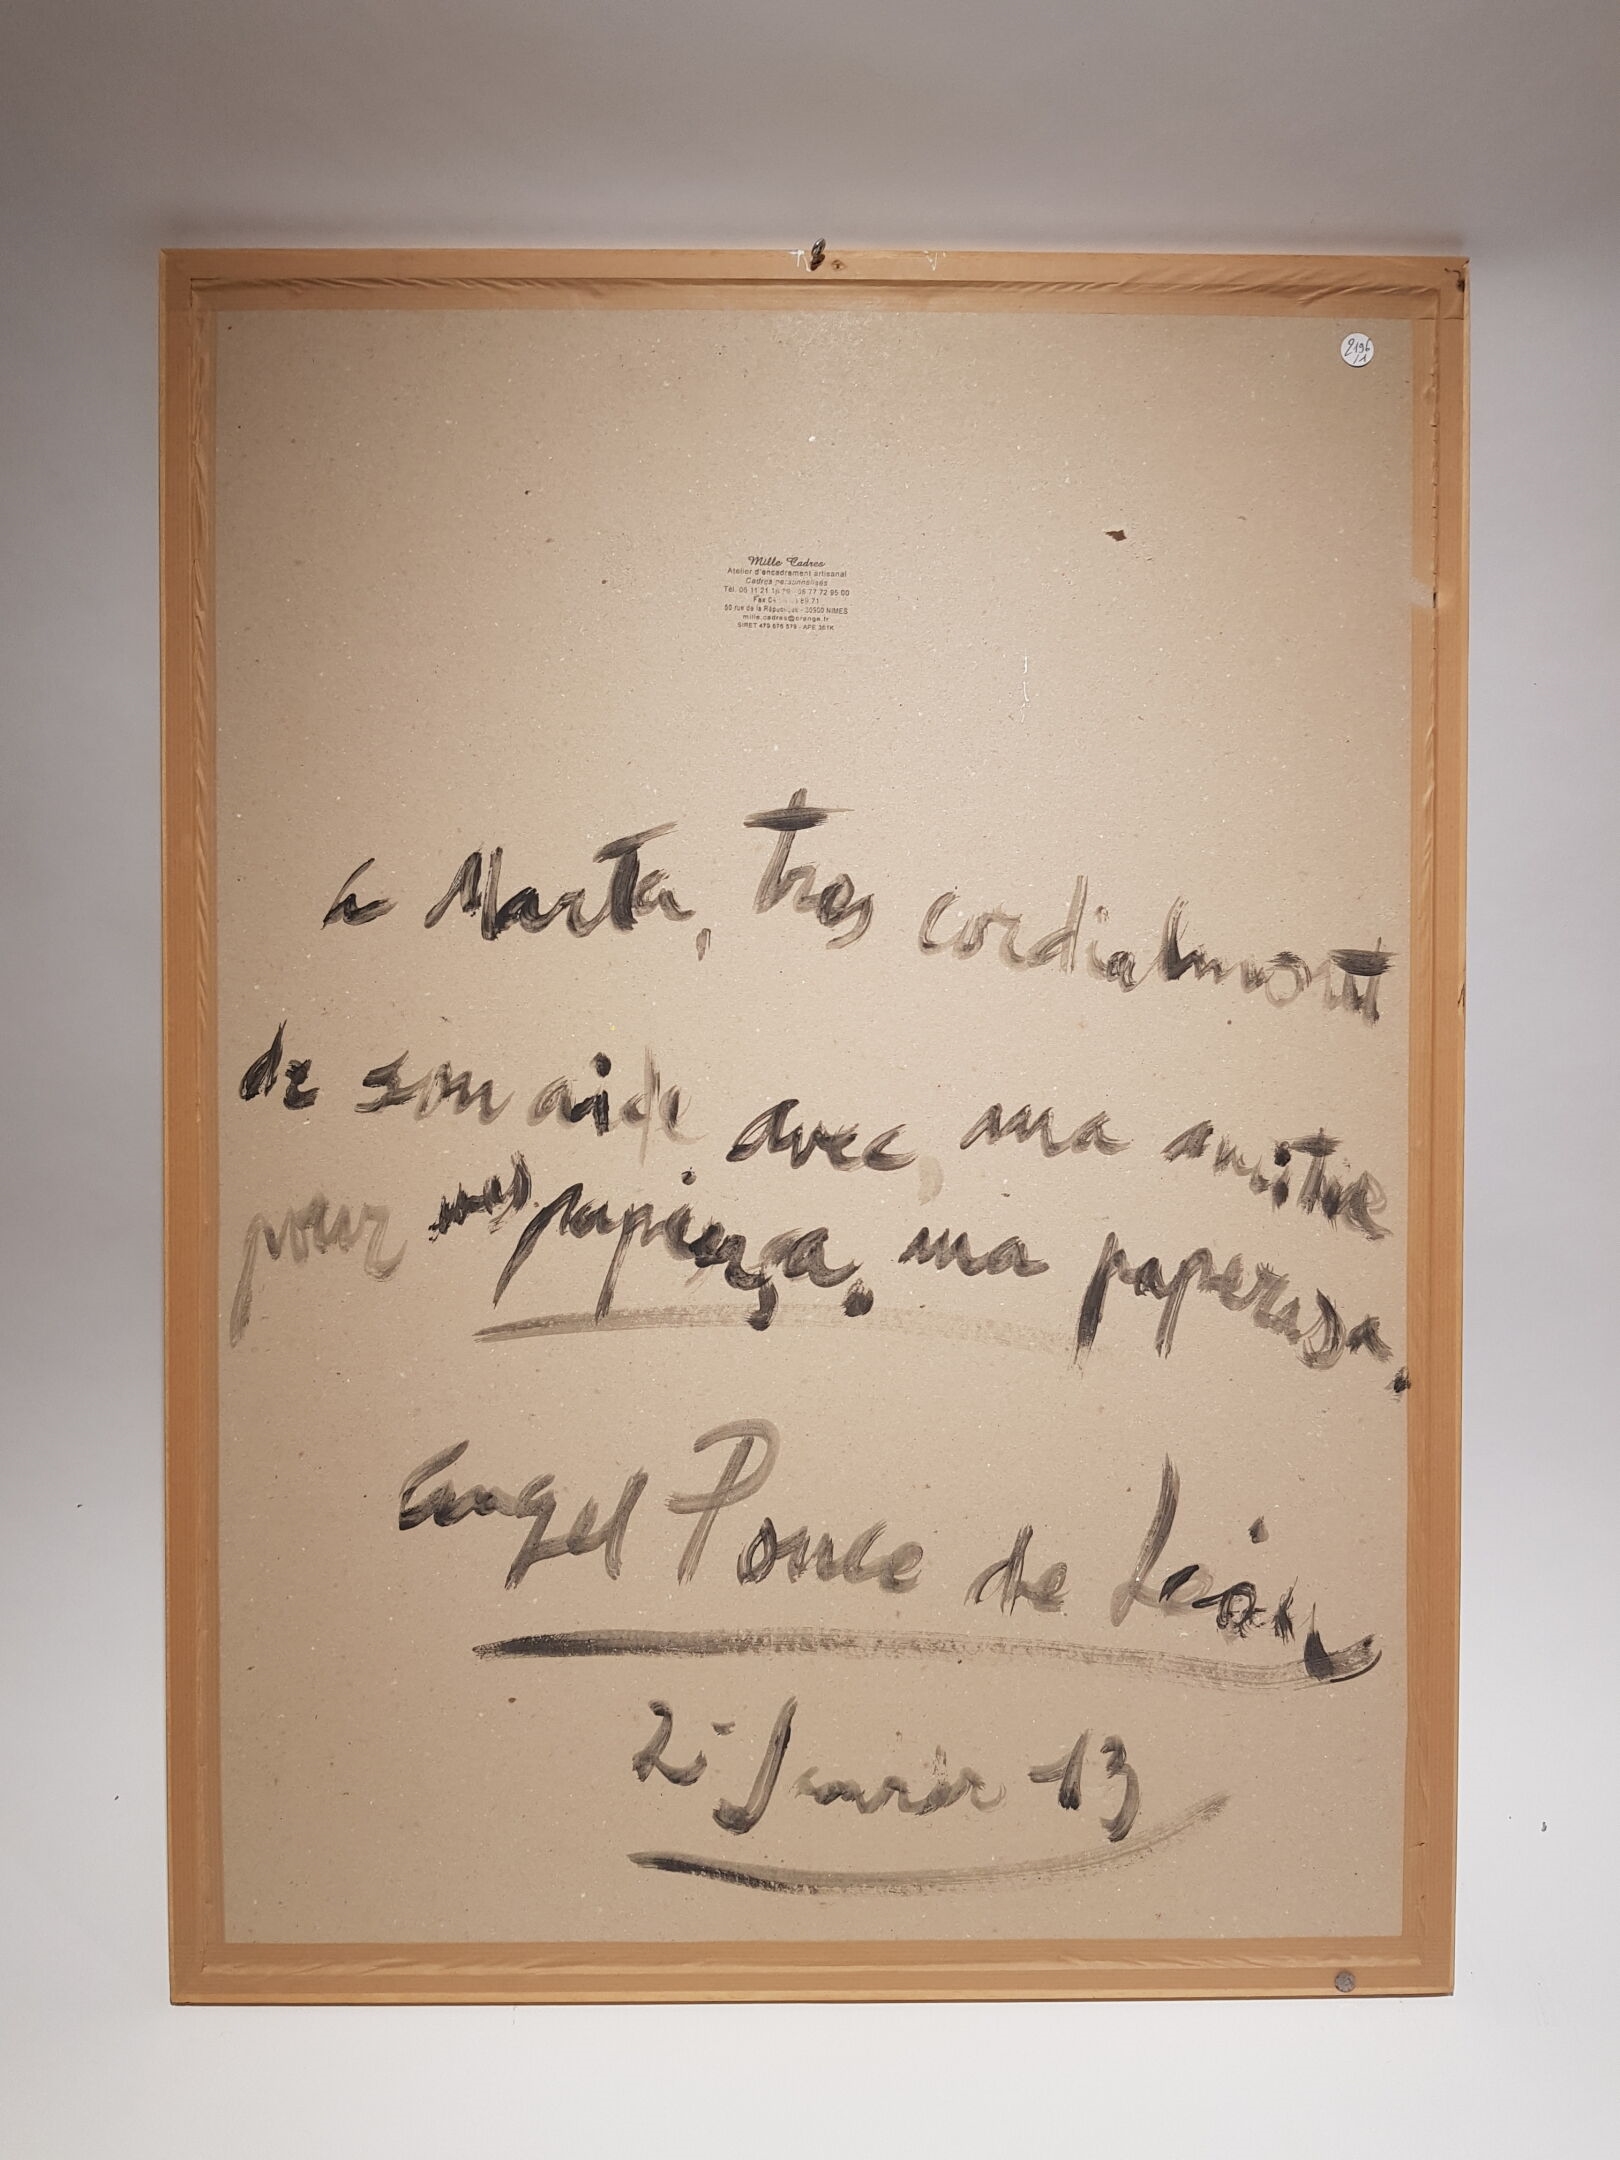 2196
/1
Mille Cadres
Atelier d'encadrement artisanal
Cadres personnalisés
Tél. 06 11 21 - 06 77 72 95 00
Fax 89 71
50 rue de la République - 30900 NIMES
mille.cadres@orange.fr
SIRET 479 676 579 - APE 361K
a Marta, Tres cordialment
de son aide avec ma amitie
pour mes ma
Angel Ponce de León
2 - Janvier 13